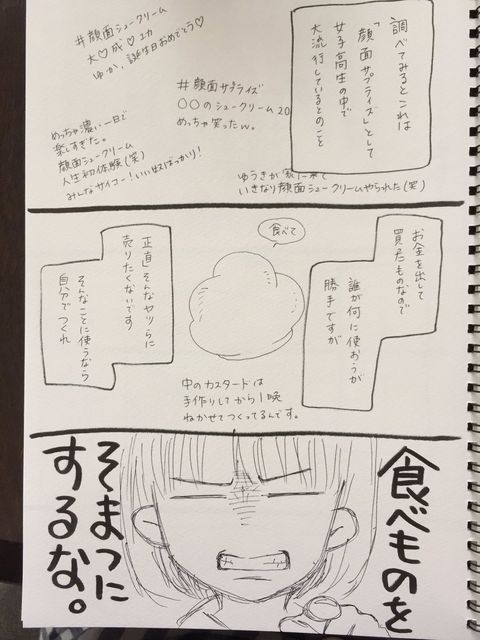 調べてみるとこれは
「顔面サプライズ」として
女子高生の中で
大流行しているとのこと
#顔面シュークリーム
大♡成♡功
ゆか、誕生日おめでとう♡
#顔面サプライズ
○○のシュークリーム20
めっちゃ笑ったw。
めっちゃ濃い一日で
楽しすぎた。
顔面シュークリーム
人生初体験(笑)
みんなサイコー!いい奴ばっかり!
ゆうきが
いきなり顔面シュークリームやられた(笑)
お金を出して
買たものなので
誰が何に使おうが
勝手ですが
食べて
中のカスタードは
手作りしてから1晩
ねかせてつくってるんです。
正直そんなヤツらに
売りたくないです
そんなことに使うなら
自分でつくれ
食べものを
そまつに
するな。